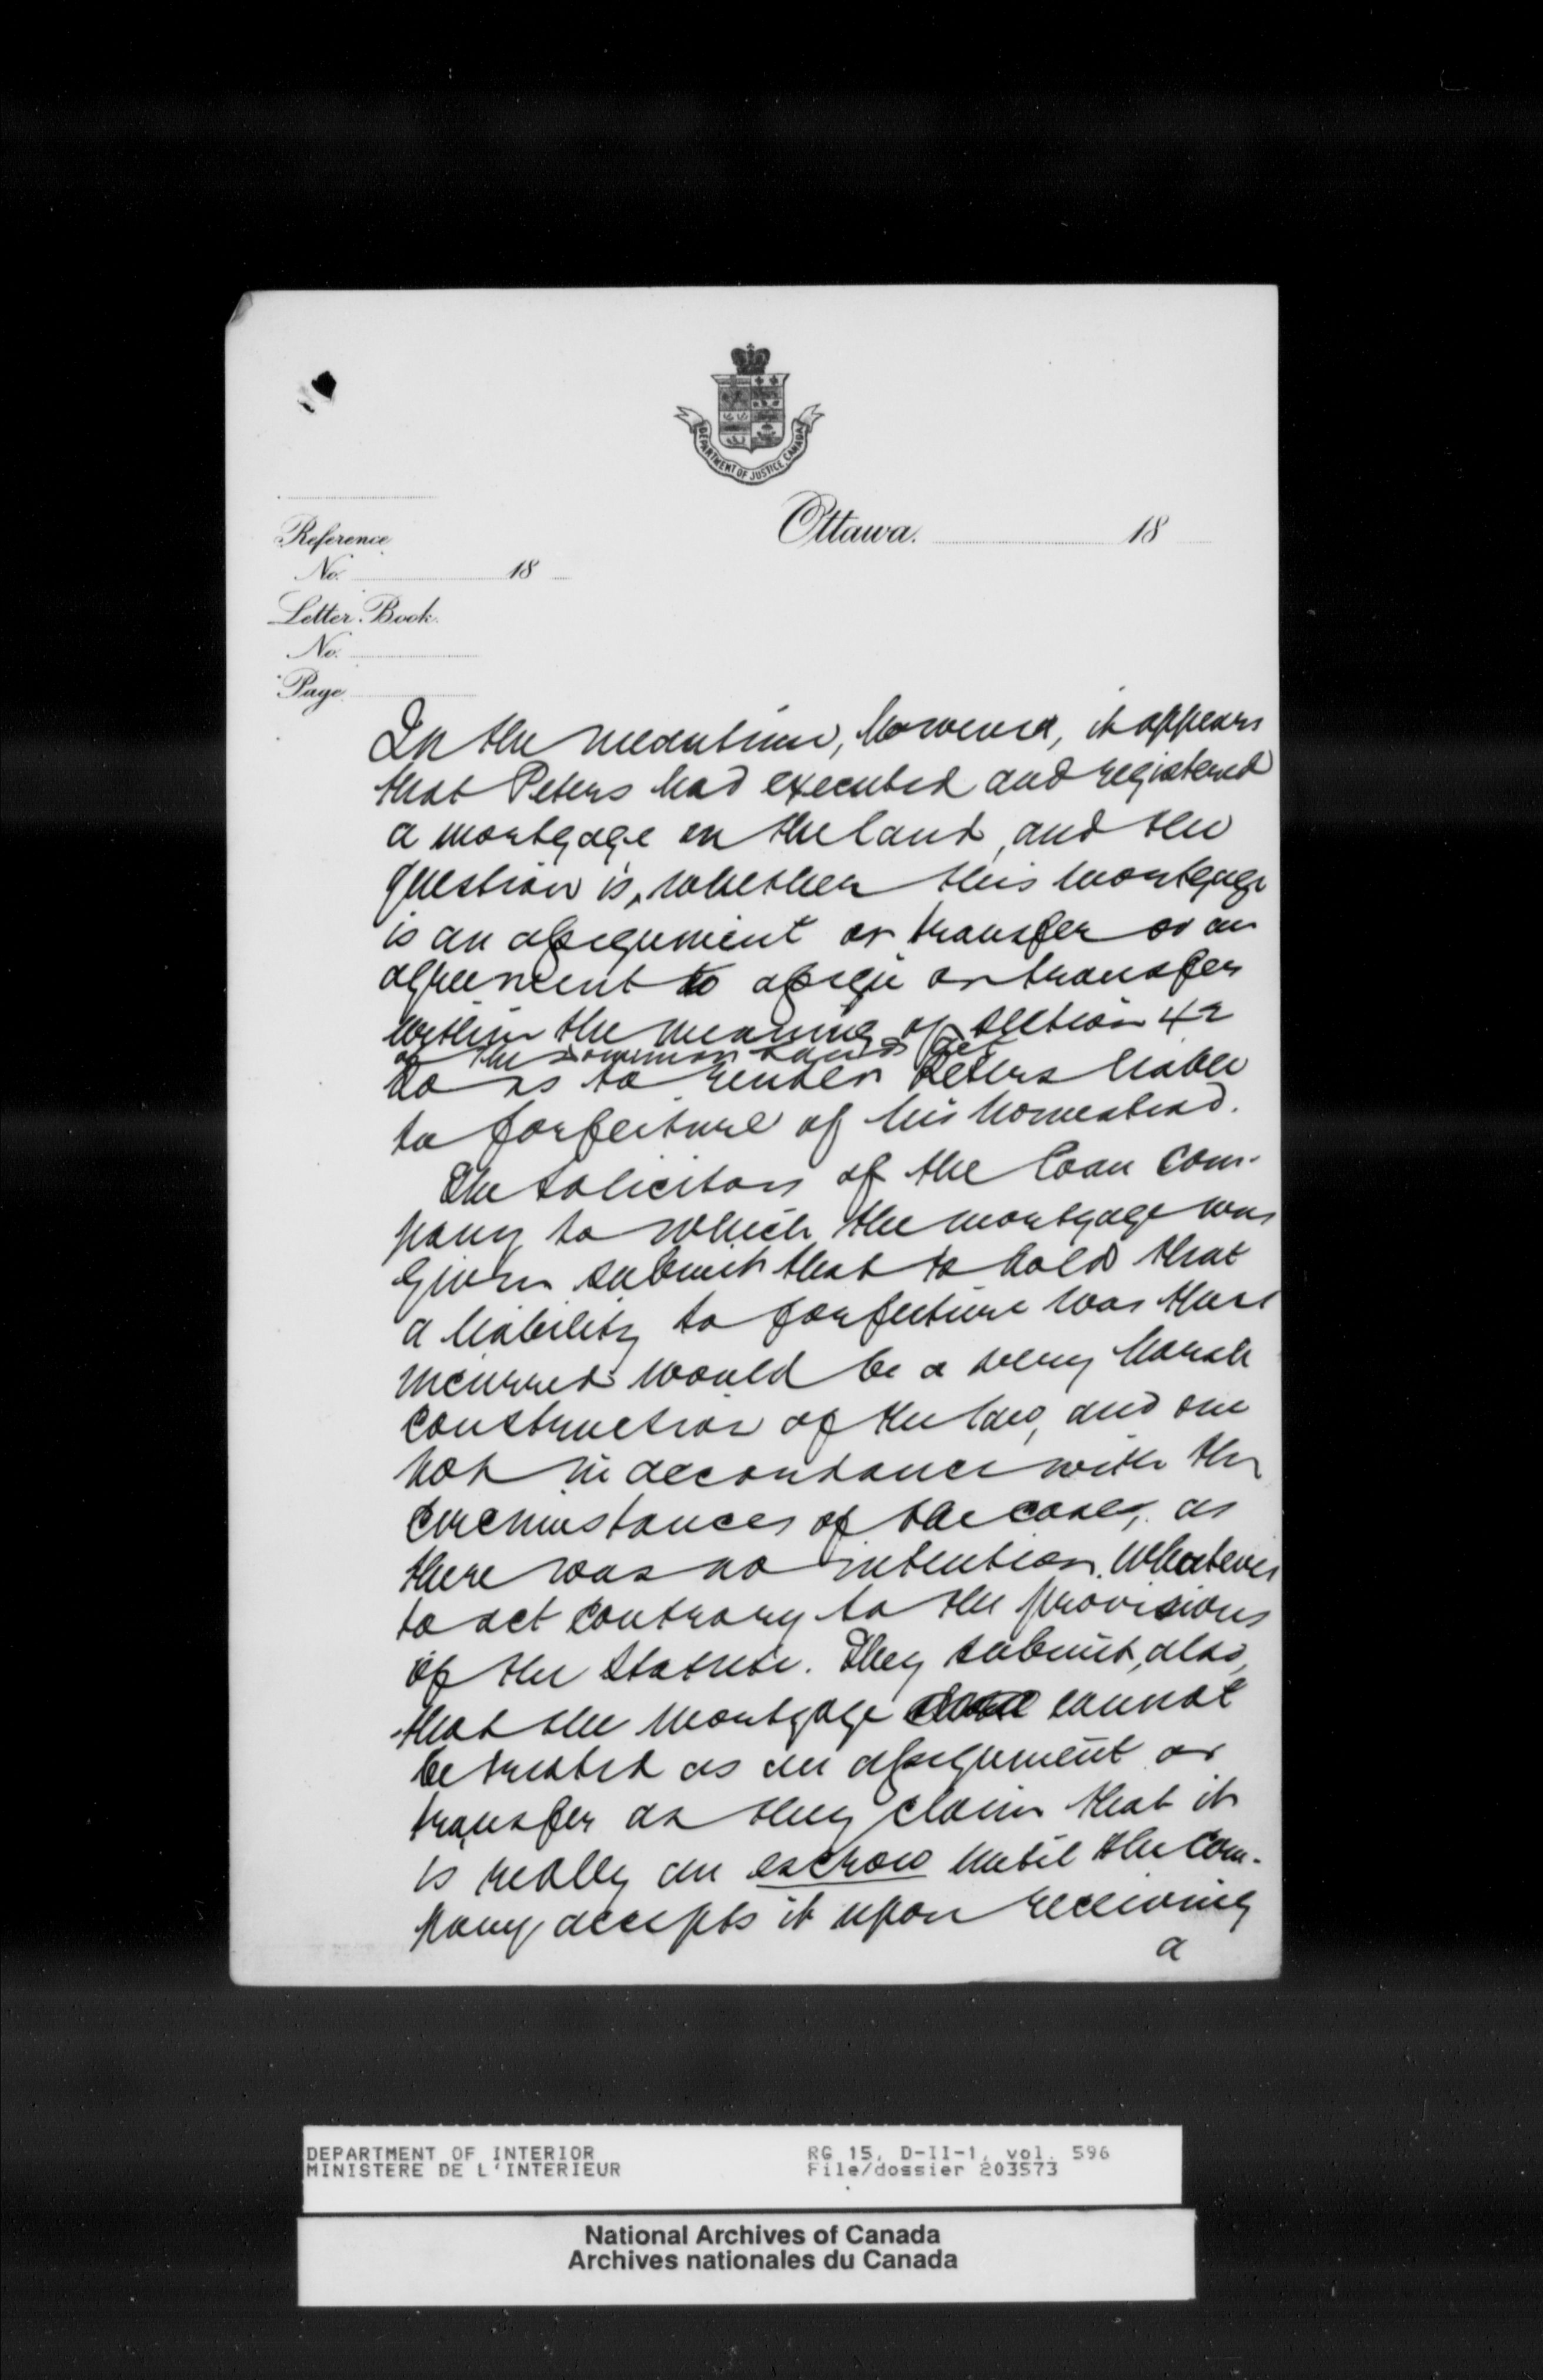 DEPARTMENT OF JUSTICE, CANADA
Ottawa. 18
Reference
No. 18
Letter Book.
No.
Page
In the meantime, however, it appears
that Peters had executed and registered
a mortgage on the land, and the
question is, whether this mortgage
is an assignment or transfer or an
agreement to assign or transfer
within the meaning of section 42
of the Dominion Lands Act
so as to render Peters liable
to forfeiture of his homestead.
The solicitors of the loan com-
pany to which the mortgage was
given submit that to hold that
a liability to forfeiture was thus
incurred would be a very harsh
construction of the law, and one
not in accordance with the
circumstances of the case, as
there was no intention whatever
to act contrary to the provisions
of the Statute. They submit, also,
that the mortgage cannot
be treated as an assignment or
transfer as they claim that it
is really an escrow until the Com-
pany accepts it upon receiving
a
DEPARTMENT OF INTERIOR
MINISTERE DE L'INTERIEUR
RG 15, D-II-1, vol. 596
File/dossier 203573
National Archives of Canada
Archives nationales du Canada